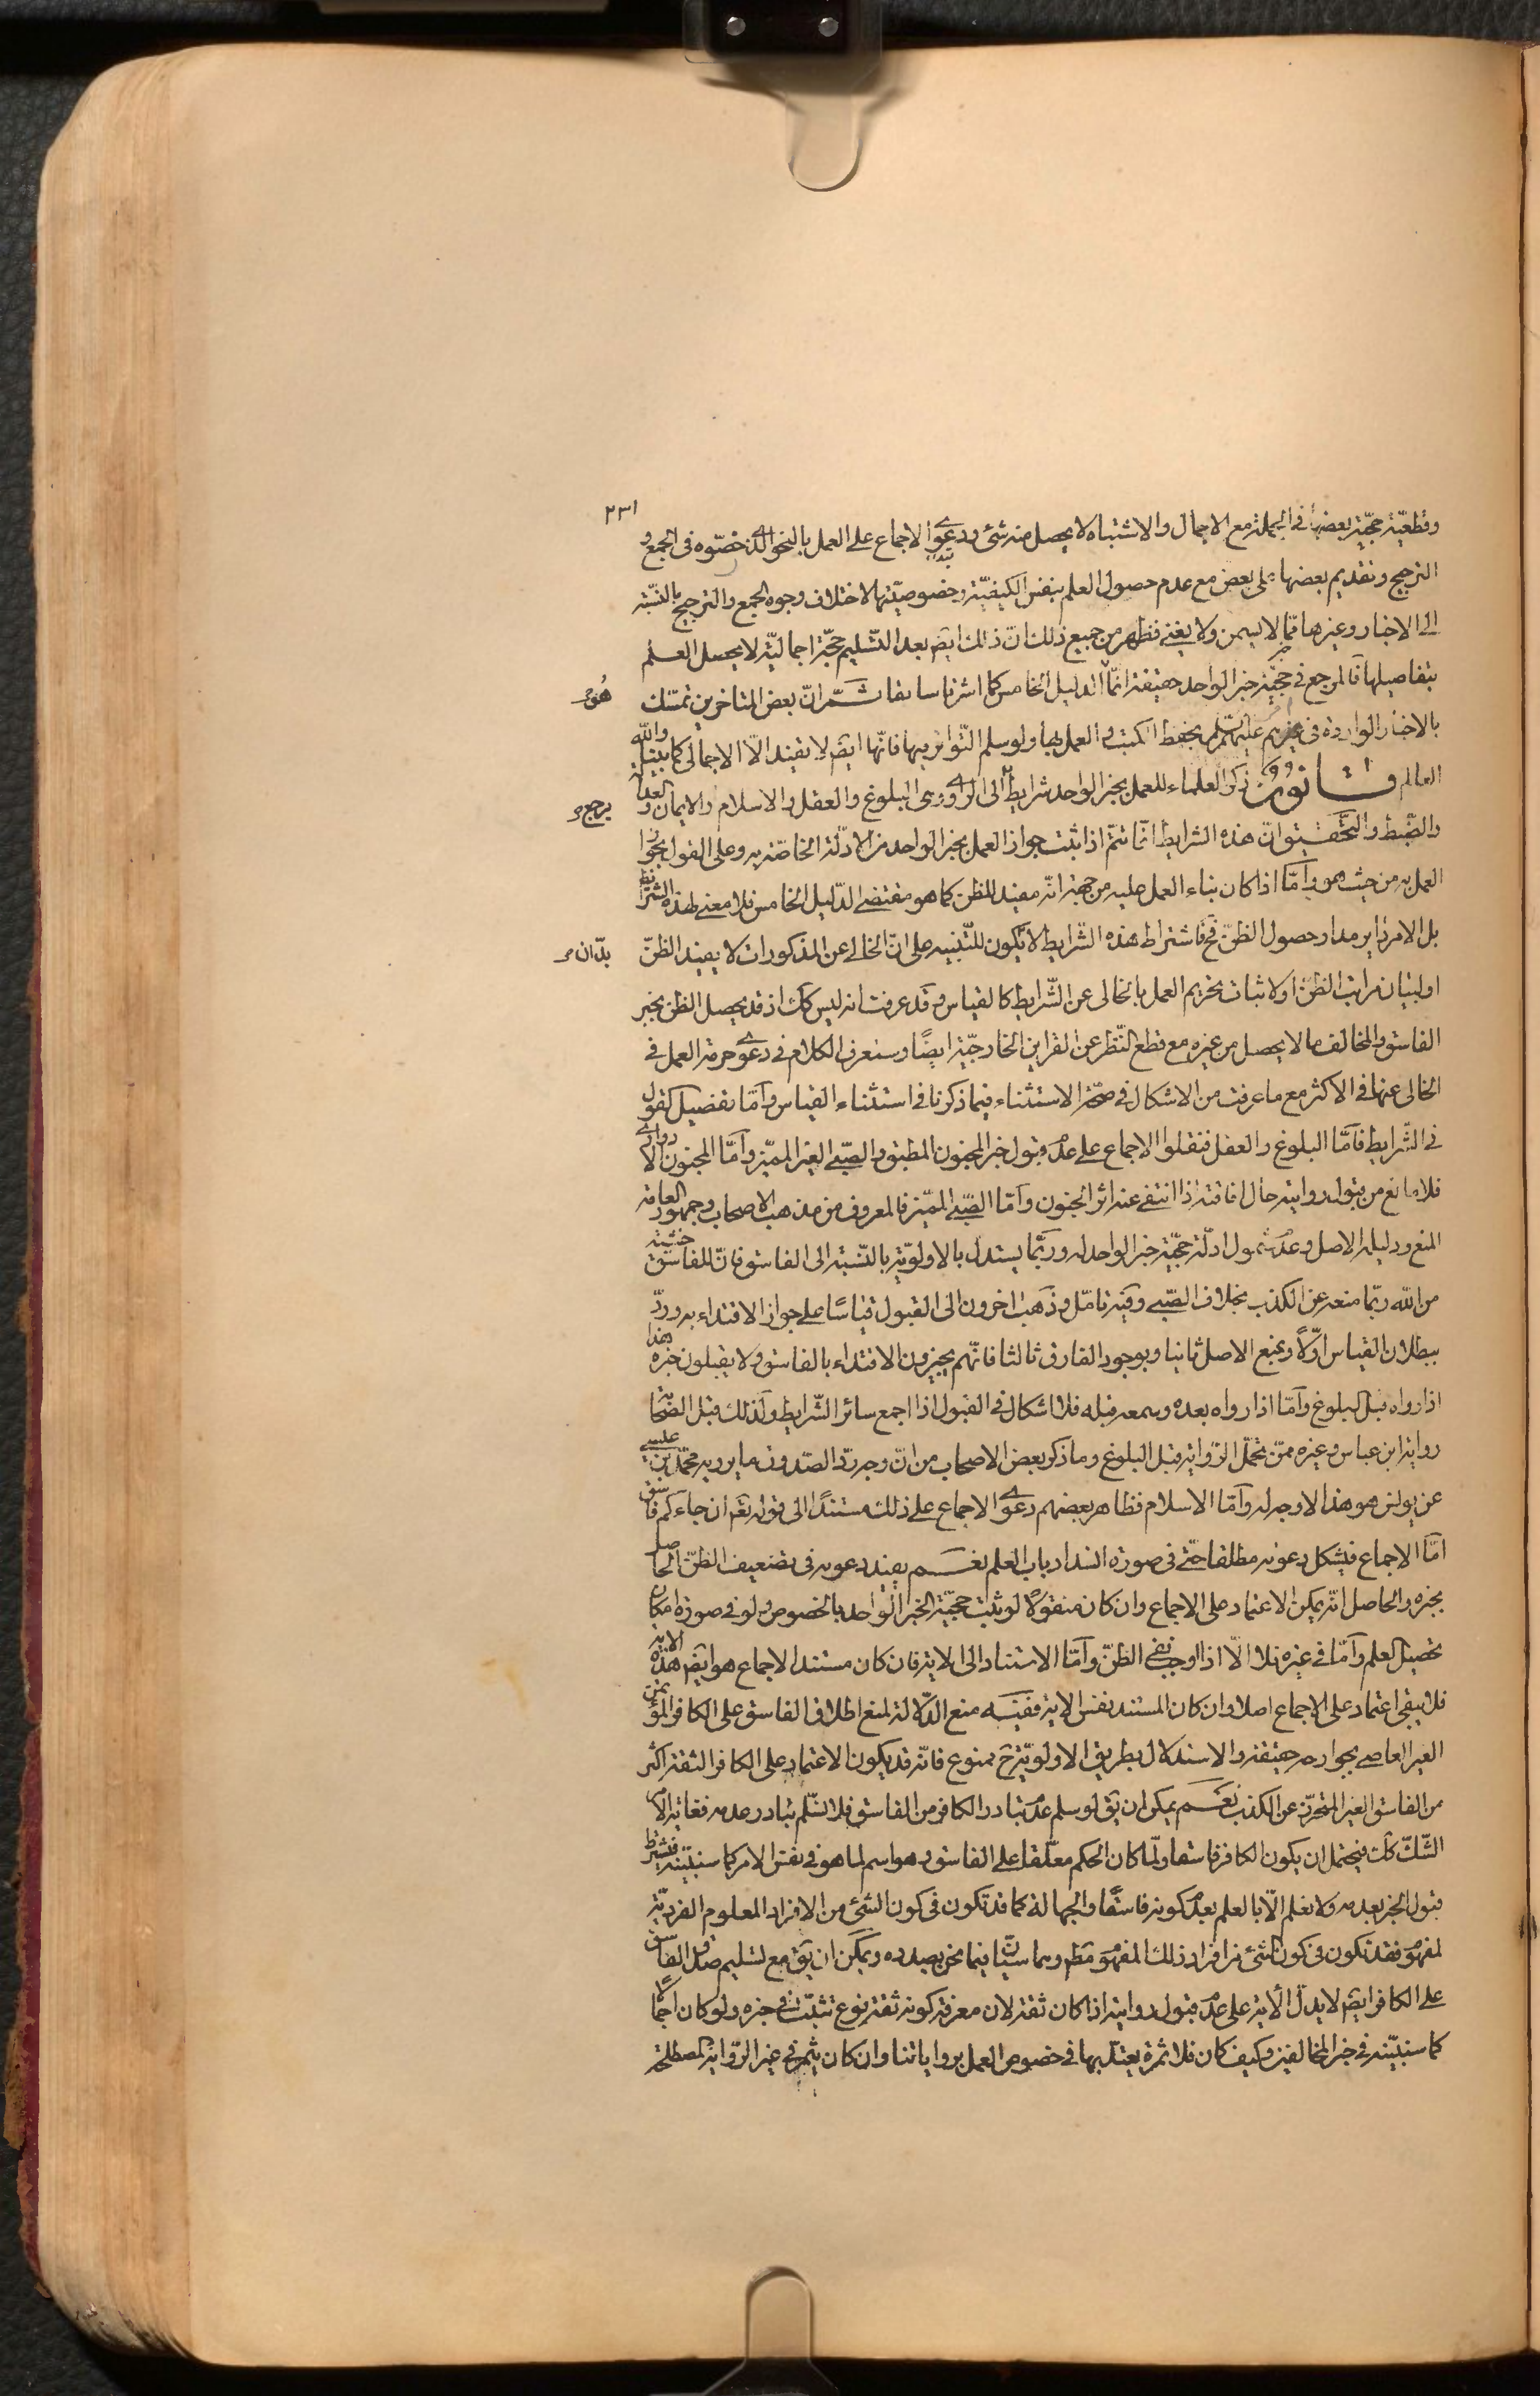 ٢٣١
وقطعيّة حجّية بعضها في الجملة مع الاجمال والاشتباه لا يحصل منه شئ ودعوى الاجماع على العمل بالنحو الذى خصّوه فى الجمع و
الترجيح وتقديم بعضها على بعض مع عدم حصول العلم بنفس الكيفيّة وخصوصيّتها لاختلاف وجوه الجمع والترجيح بالنسبة
الى الاخبار وغيرها ممّا لا يسمن ولا يغنى فظهر من جميع ذلك انّ ذلك ايضا بعد التسليم حجّة اجماليّة لا يحصل العلم
بتفاصيلها فالمرجع فى حجّية خبر الواحد حقيقة انّما الدليل الخامس كما اشرنا سابقا ثمّ انّ بعض المتاخرين تمسّك
هو
بالاخبار الواردة فى امرهم عليهم السلم بحفظ الكتب والعمل بها ولو سلم التّواتر فيها فانّها ايضا لا يفيد الّا الاجمالى كما بيّنا والله
العالم قانون ذكر العلماء للعمل بخبر الواحد شرايط الى الراوى وهى البلوغ والعقل والاسلام والايمان والعدالة
يرجع
والضّبط والتّحقيق انّ هذه الشرايط انّما تتمّ اذا ثبت جواز العمل بخبر الواحد من الادلّة الخاصّة به وعلى القول بجواز
العمل به من حيث هو وامّا اذا كان بناء العمل عليه من جهة انّه مفيد للظن كما هو مقتضى الدّليل الخامس فلا معنى لهذه الشرائط
بل الامر داير مدار حصول الظنّ فح فاشتراط هذه الشّرايط لا يكون للتّنبيه على انّ الخالى عن المذكورات لا يفيد الظنّ
بدّ ان
او لبيان مراتب الظنّ او لاثبات تحريم العمل بالخالى عن الشّرايط كالقياس وقد عرفت انه ليس كك اذ قد يحصل الظن بخبر
الفاسق والمخالف ما لا يحصل من غيره مع قطع النّظر عن القراين الخارجيّة ايضًا وستعرف الكلام فى دعوى حرمة العمل فى
الخالى عنها فى الاكثر مع ما عرفت من الاشكال فى صحّة الاستثناء فيما ذكرنا فى استثناء القياس وامّا تفصيل القول
فى الشّرايط فامّا البلوغ والعقل فنقلوا الاجماع على عدم قبول خبر المجنون المطبق والصّبى الغير المميّز وامّا المجنون الادوارى
فلا مانع من قبول روايته حال افاقته اذا انتفى عنه اثر الجنون وامّا الصّبى المميّز فالمعروف من مذهب الاصحاب وجمهور العامّة
المنع ودليله الاصل وعدم شمول ادلّة حجّية خبر الواحد له وربّما يستدلّ بالاولويّة بالنّسبة الى الفاسق فانّ للفاسق خشية
من الله ربّما منعه عن الكذب بخلاف الصّبى وفيه تامّل وذهب اخرون الى القبول قياسًا على جواز الاقتداء به وردّ
ببطلان القياس اوّلًا وبمنع الاصل ثانيا وبوجود الفارق ثالثا فانّهم يجيزون الاقتداء بالفاسق ولا يقبلون خبره هذا
اذا رواه قبل البلوغ وامّا اذا رواه بعده وسمعه قبله فلا اشكال فى القبول اذا اجمع سائر الشّرايط ولذلك قبل الصّحابة
رواية ابن عباس وغيره ممّن تحمّل الرّواية قبل البلوغ وما ذكر بعض الاصحاب من انّ وجه ردّ الصّدوق ما يرويه محمّد بن عيسى
عن يونس هو هذا لا وجه له وامّا الاسلام فظاهر بعضهم دعوى الاجماع على ذلك مستندًا الى قوله تعم ان جاءكم فاسق
امّا الاجماع فيشكل دعوته مطلقا حتّى فى صورة انسداد باب العلم نعم يفيد دعوته فى تضعيف الظنّ الحاصل
بخبره والحاصل انّه يمكن الاعتماد على الاجماع وان كان منقولًا لو ثبت حجيّة الخبر الواحد بالخصوص ولو فى صورة امكان
تحصيل العلم وامّا فى غيره فلا الّا اذا اوجب نفى الظنّ وامّا الاستناد الى الاية فان كان مستند الاجماع هو ايضا هذه الاية
فلا يبقى اعتماد على الاجماع اصلا وان كان المستند نفس الاية ففيه منع الدّلالة لمنع اطلاق الفاسق على الكافر المؤتمن
الغير العاصى بجوارحه حقيقة والاستدلال بطريق الاولويّة ح ممنوع فانّه قد يكون الاعتماد على الكافر الثقة اكثر
من الفاسق الغير المتحرّز عن الكذب نعم يمكن ان يق لو سلم عدم تبادر الكافر من الفاسق فلا نسّلم تبادر عدمه فغاية الامر
الشّك كك فيحتمل ان يكون الكافر فاسقا ولمّا كان الحكم معلّقا على الفاسق وهو اسم لما هو فى نفس الامر كما سنبيّنه فيشترط
قبول الخبر بعدمه ولا نعلم الّا بالعلم بعدم كونه فاسقًا والجهالة كما قد تكون فى كون الشئ من الافراد المعلوم الفرديّة
لمفهوم فقد تكون فى كون الشئ من افراد ذلك المفهوم مطم وهما سيّان فيما نحن بصدده ويمكن ان يق مع تسليم صدق الفاسق
على الكافر ايضا لا يدلّ الاية على عدم قبول روايته اذا كان ثقة لان معرفة كونه ثقة نوع تثبّت فى خبره ولو كان اجمالًا
كما سنبيّنه فى خبر المخالفين وكيف كان فلا ثمرة يعتدّ بها فى خصوص العمل برواياتنا وان كان يثمر فى غير الرّواية المصطلحة